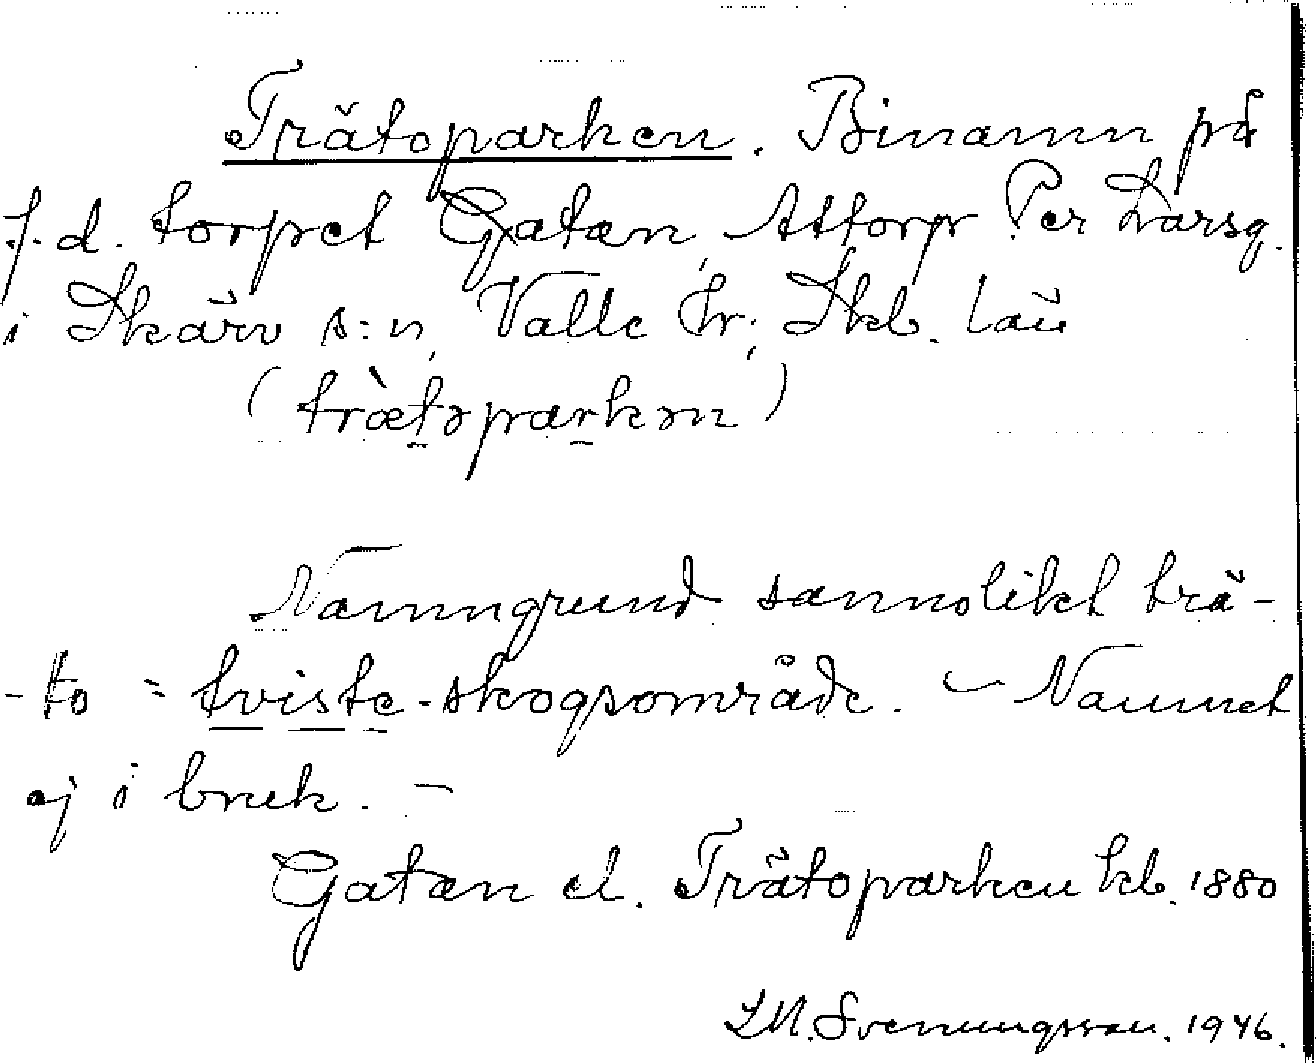 Trätoparken. Binamn på
f. d. torpet Gatan, Attorp Per Larsg.
i Skärv s:n, Valle hr; Skb. län
(trætəparkən)
Namngrund sannolikt trä-
-to = tviste-skogsområde. – Namnet
ej i bruk. –
Gatan el. Trätoparken kb. 1880
Svenungsson. 1946.